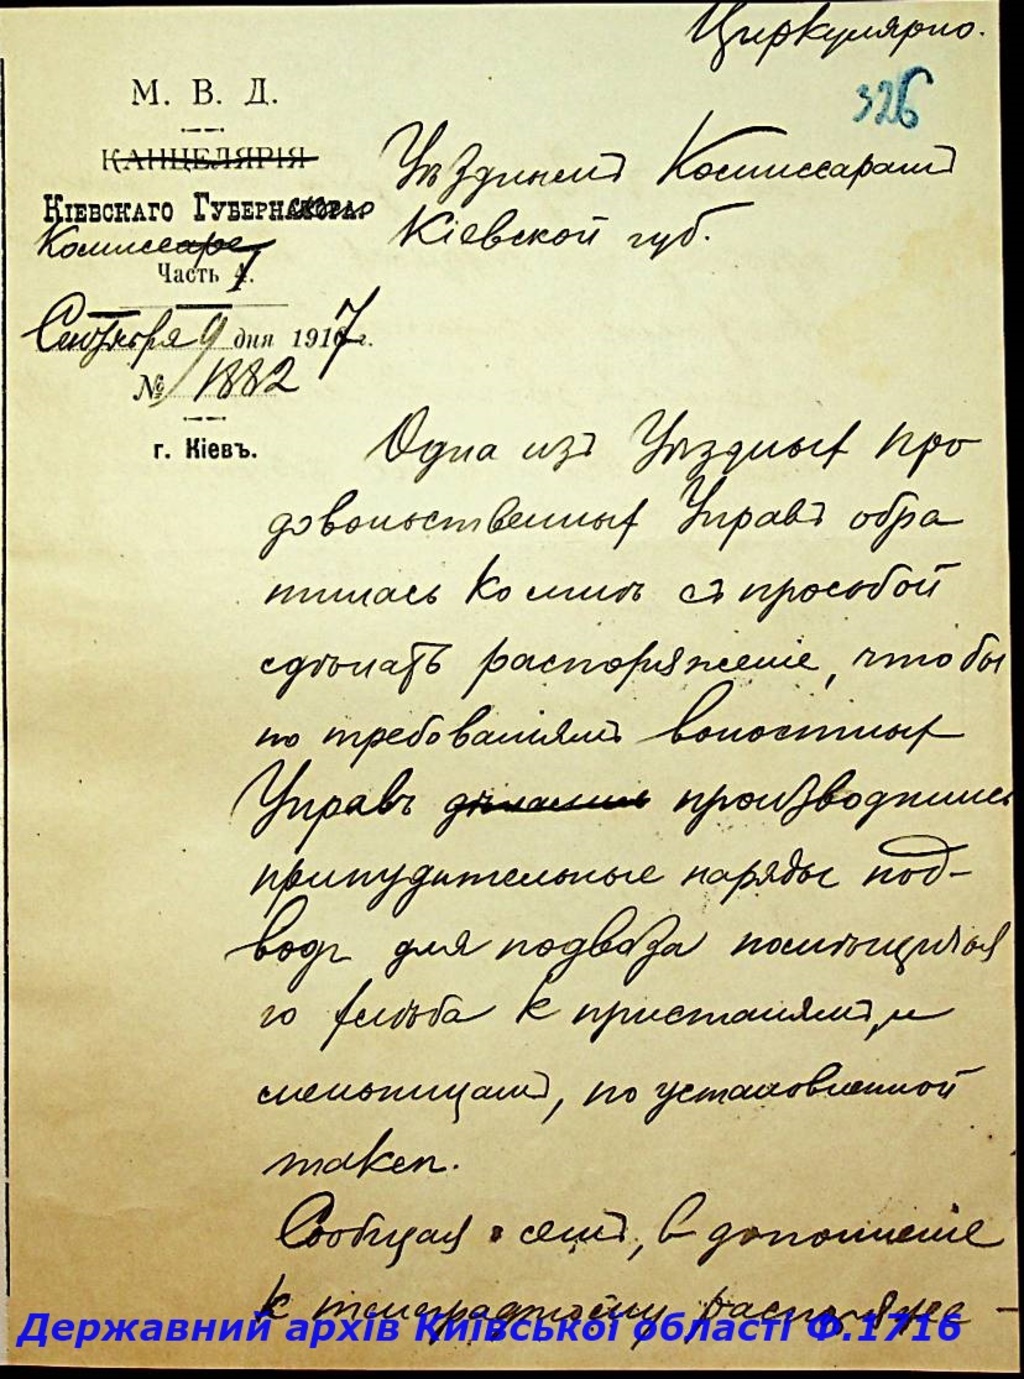 Циркулярно.
326
М. В. Д.
КАНЦЕЛЯРІЯ
КІЕВСКАГО ГУБЕРН
Комиссара
Часть 1.
Сентября 9 дня 1917 г.
№ 1882
г. Кіевъ.
Уѣзднымъ Комиссарамъ
Кіевской губ.
Одна изъ Уѣздных про
довольственных Управъ обра
тилась Ко мнѣ съ просьбой
сдѣлать распоряженіе, чтобы
по требованіямъ волостных
Управъ дѣлались производились
принудительные наряды под-
вод для подвоза
го хлѣба к пристанямъ, и
мельницамъ, по установленной
таксѣ.
Сообщая о семъ, в дополненіе
к телеграфному распоряже-
Державний архів Київської області Ф.1716